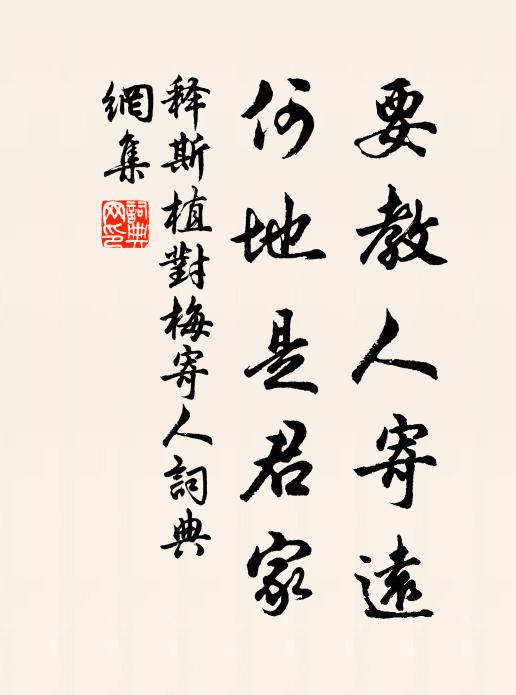 要教人寄遠
何地是君家
释斯植對梅寄人詞典
網集
詞典網印